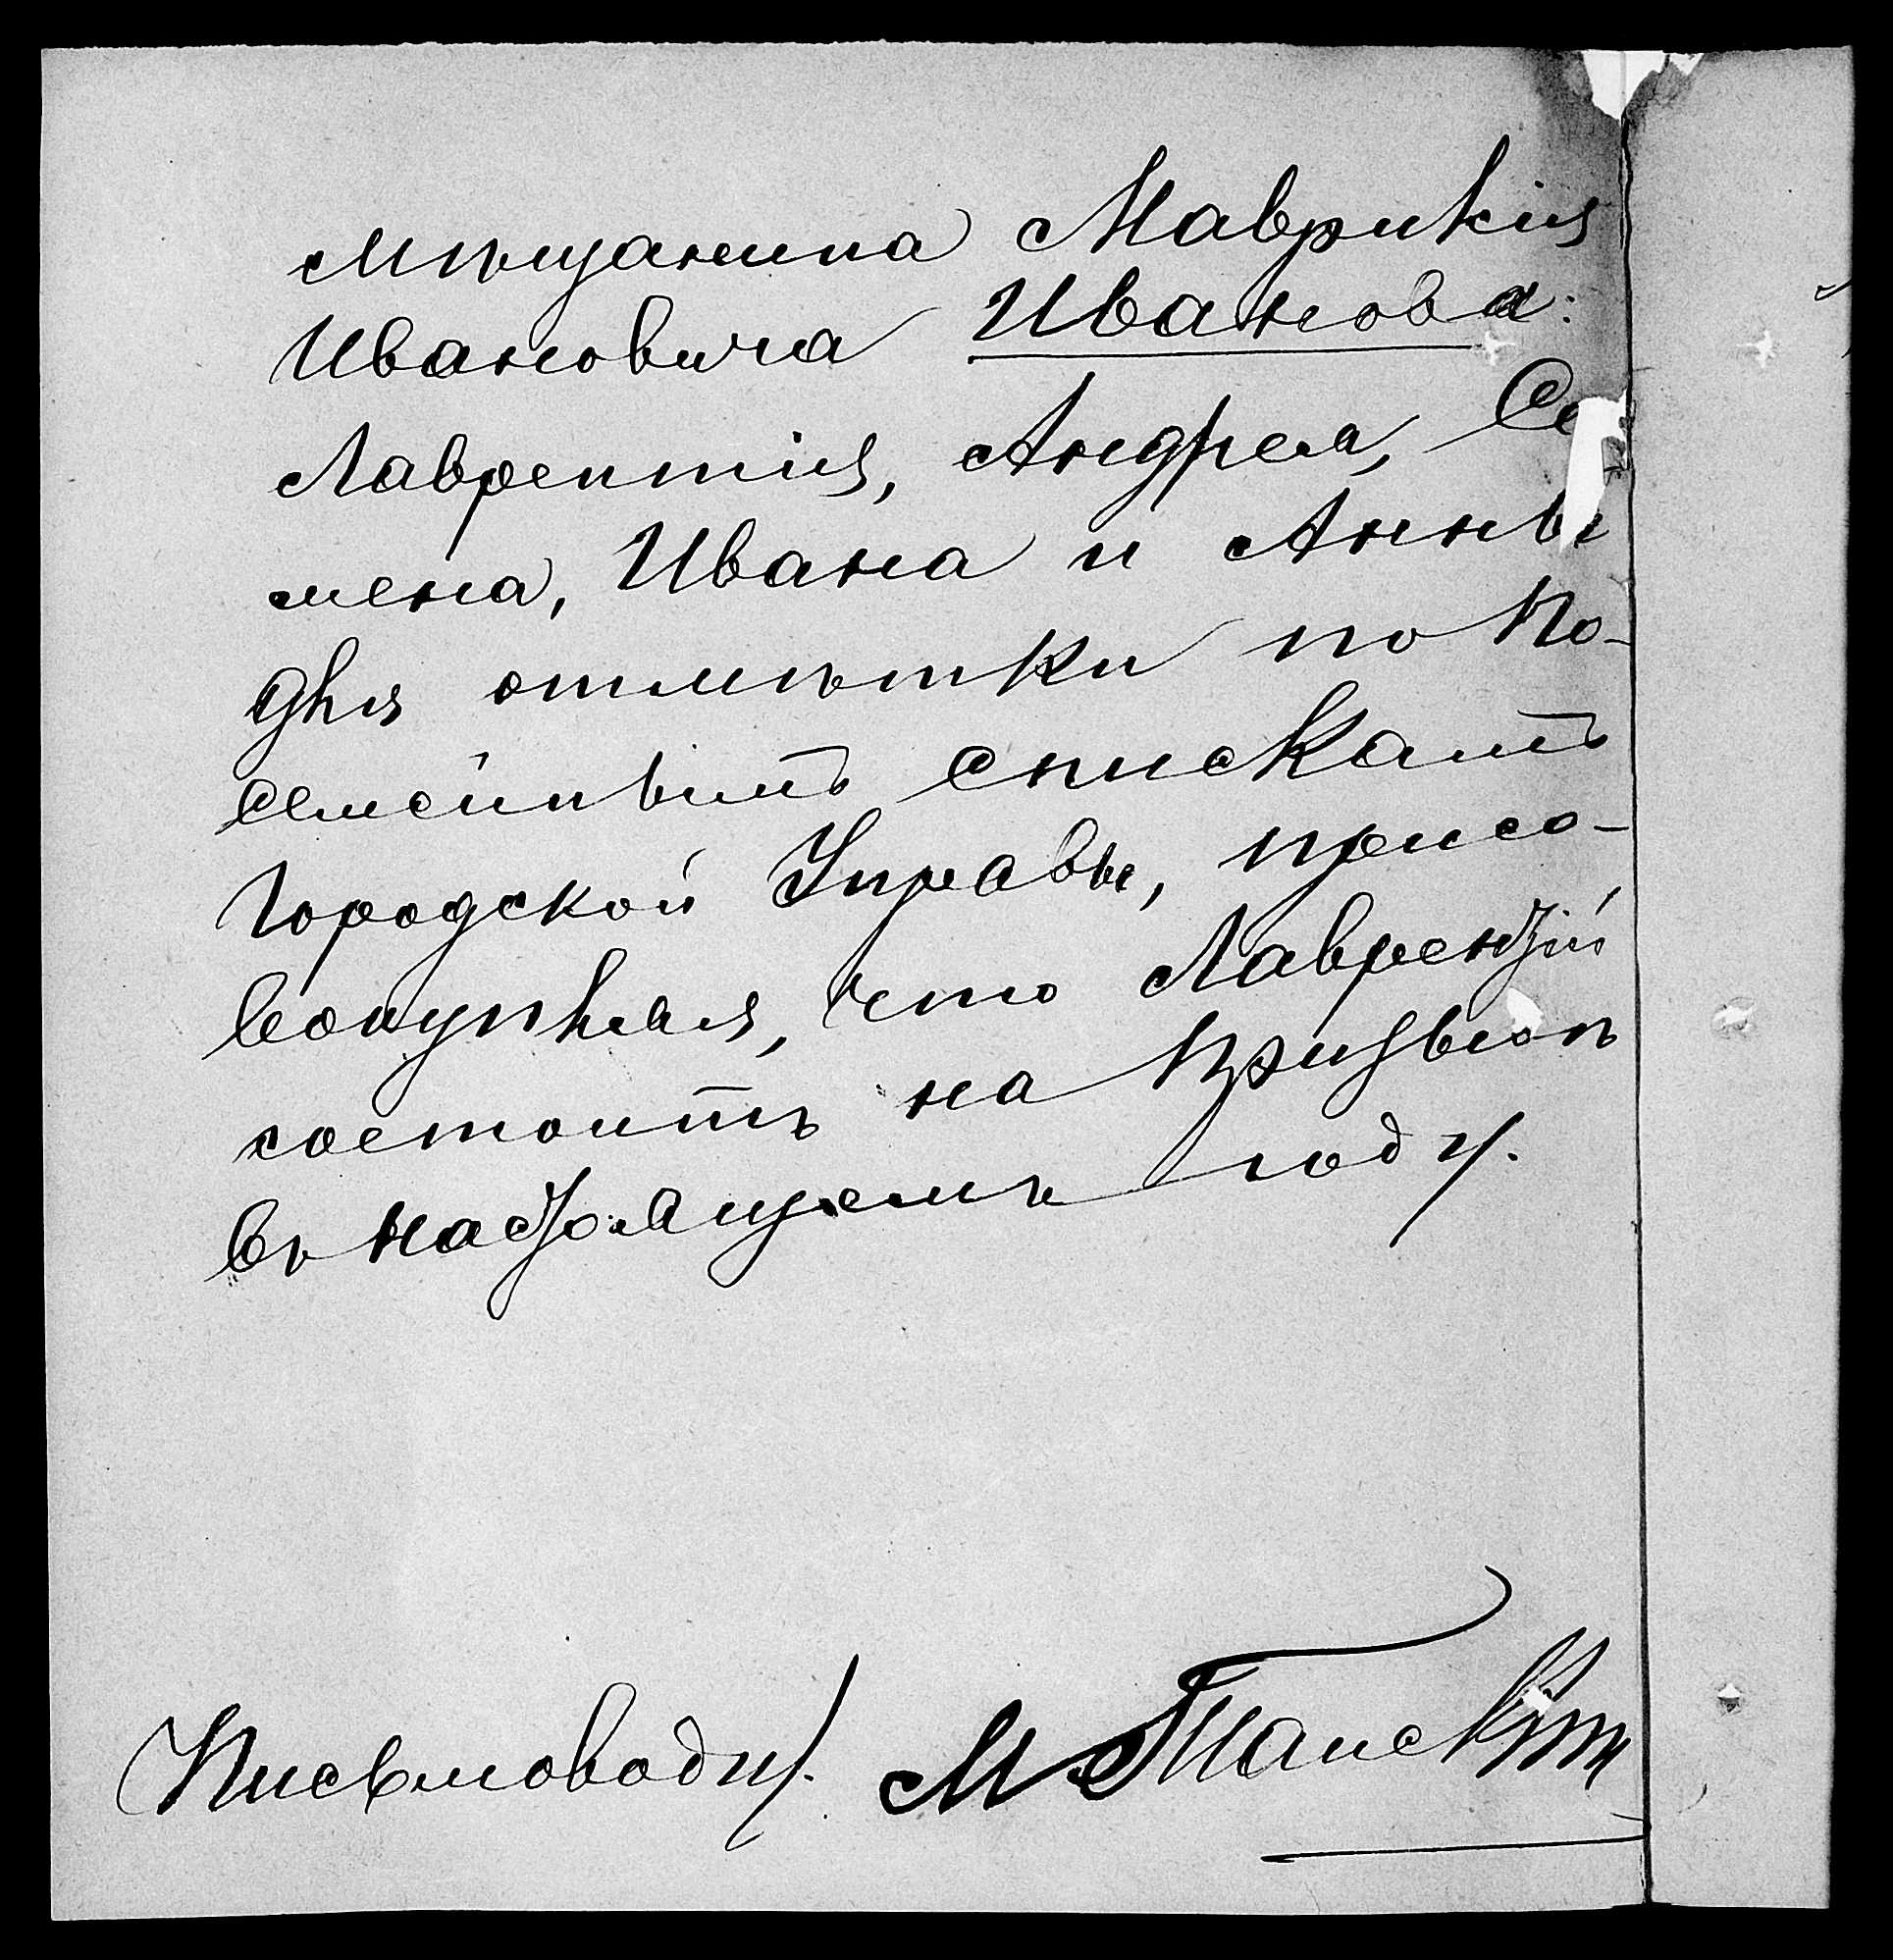 мѣщанина Маврикія
Ивановича Иванова:
Лаврентія, Андрея, Се
мена, Ивана и Анны
для отмѣтки по по-
семейнымъ спискамъ
Городской Управы, присо-
вокупляя, что Лаврентій
состоитъ на призывѣ
въ настоящемъ году.
Письмоводи/.
М.